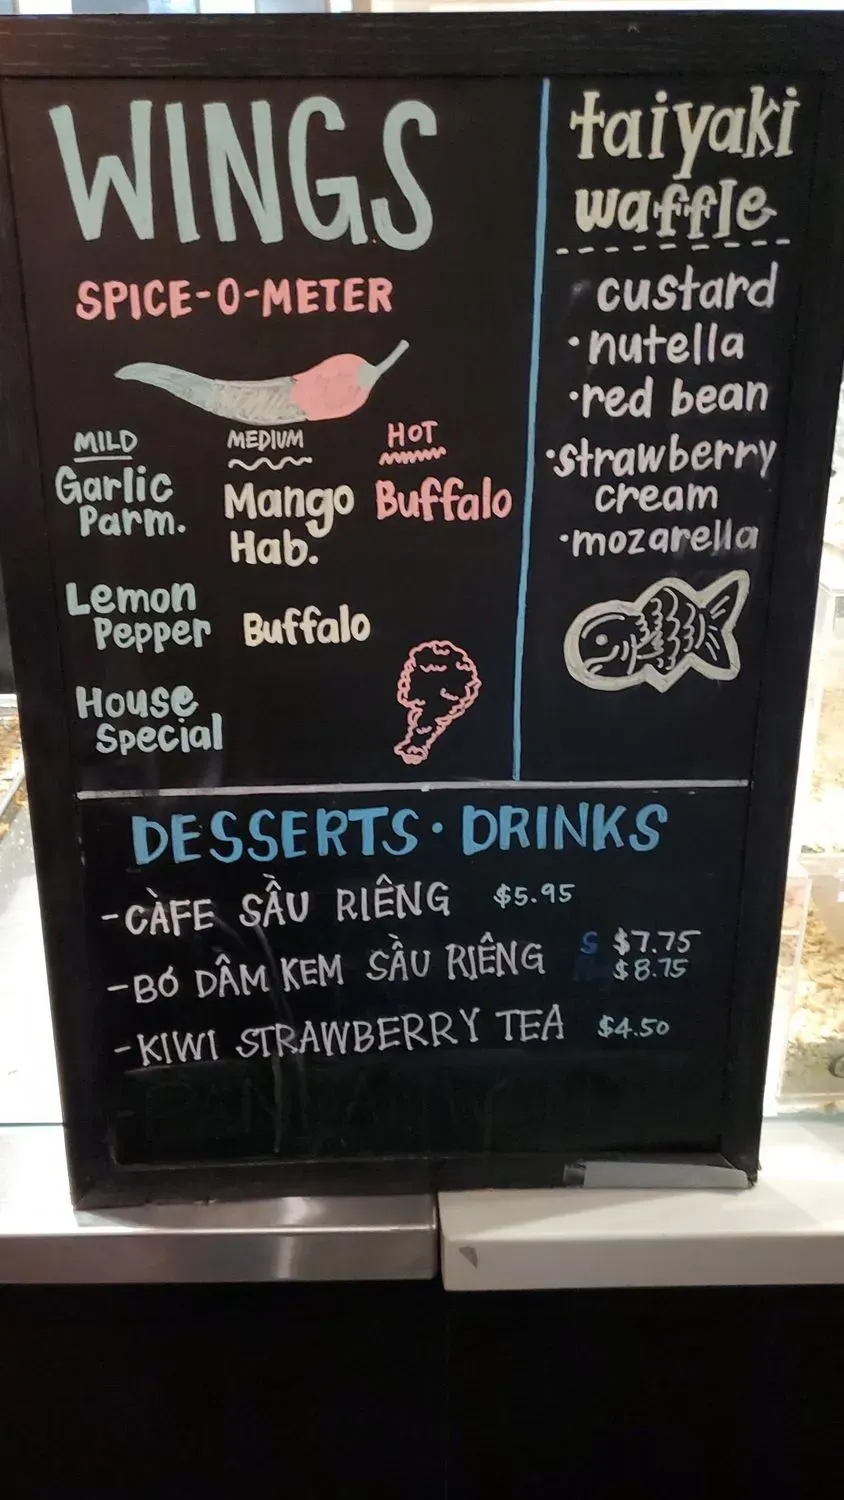 WINGS
SPICE-O-METER
MILD
Garlic
Parm.
Lemon
Pepper
House
Special
MEDIUM
Mango
Hab.
Buffalo
HOT
Buffalo
taiyaki
waffle
custard
•nutella
•red bean
•strawberry
cream
•mozarella
DESSERTS • DRINKS
-CÀFE SẦU RIÊNG $5.95
-BÓ DÂM KEM SẦU RIÊNG S $7.75
$8.75
-KIWI STRAWBERRY TEA $4.50